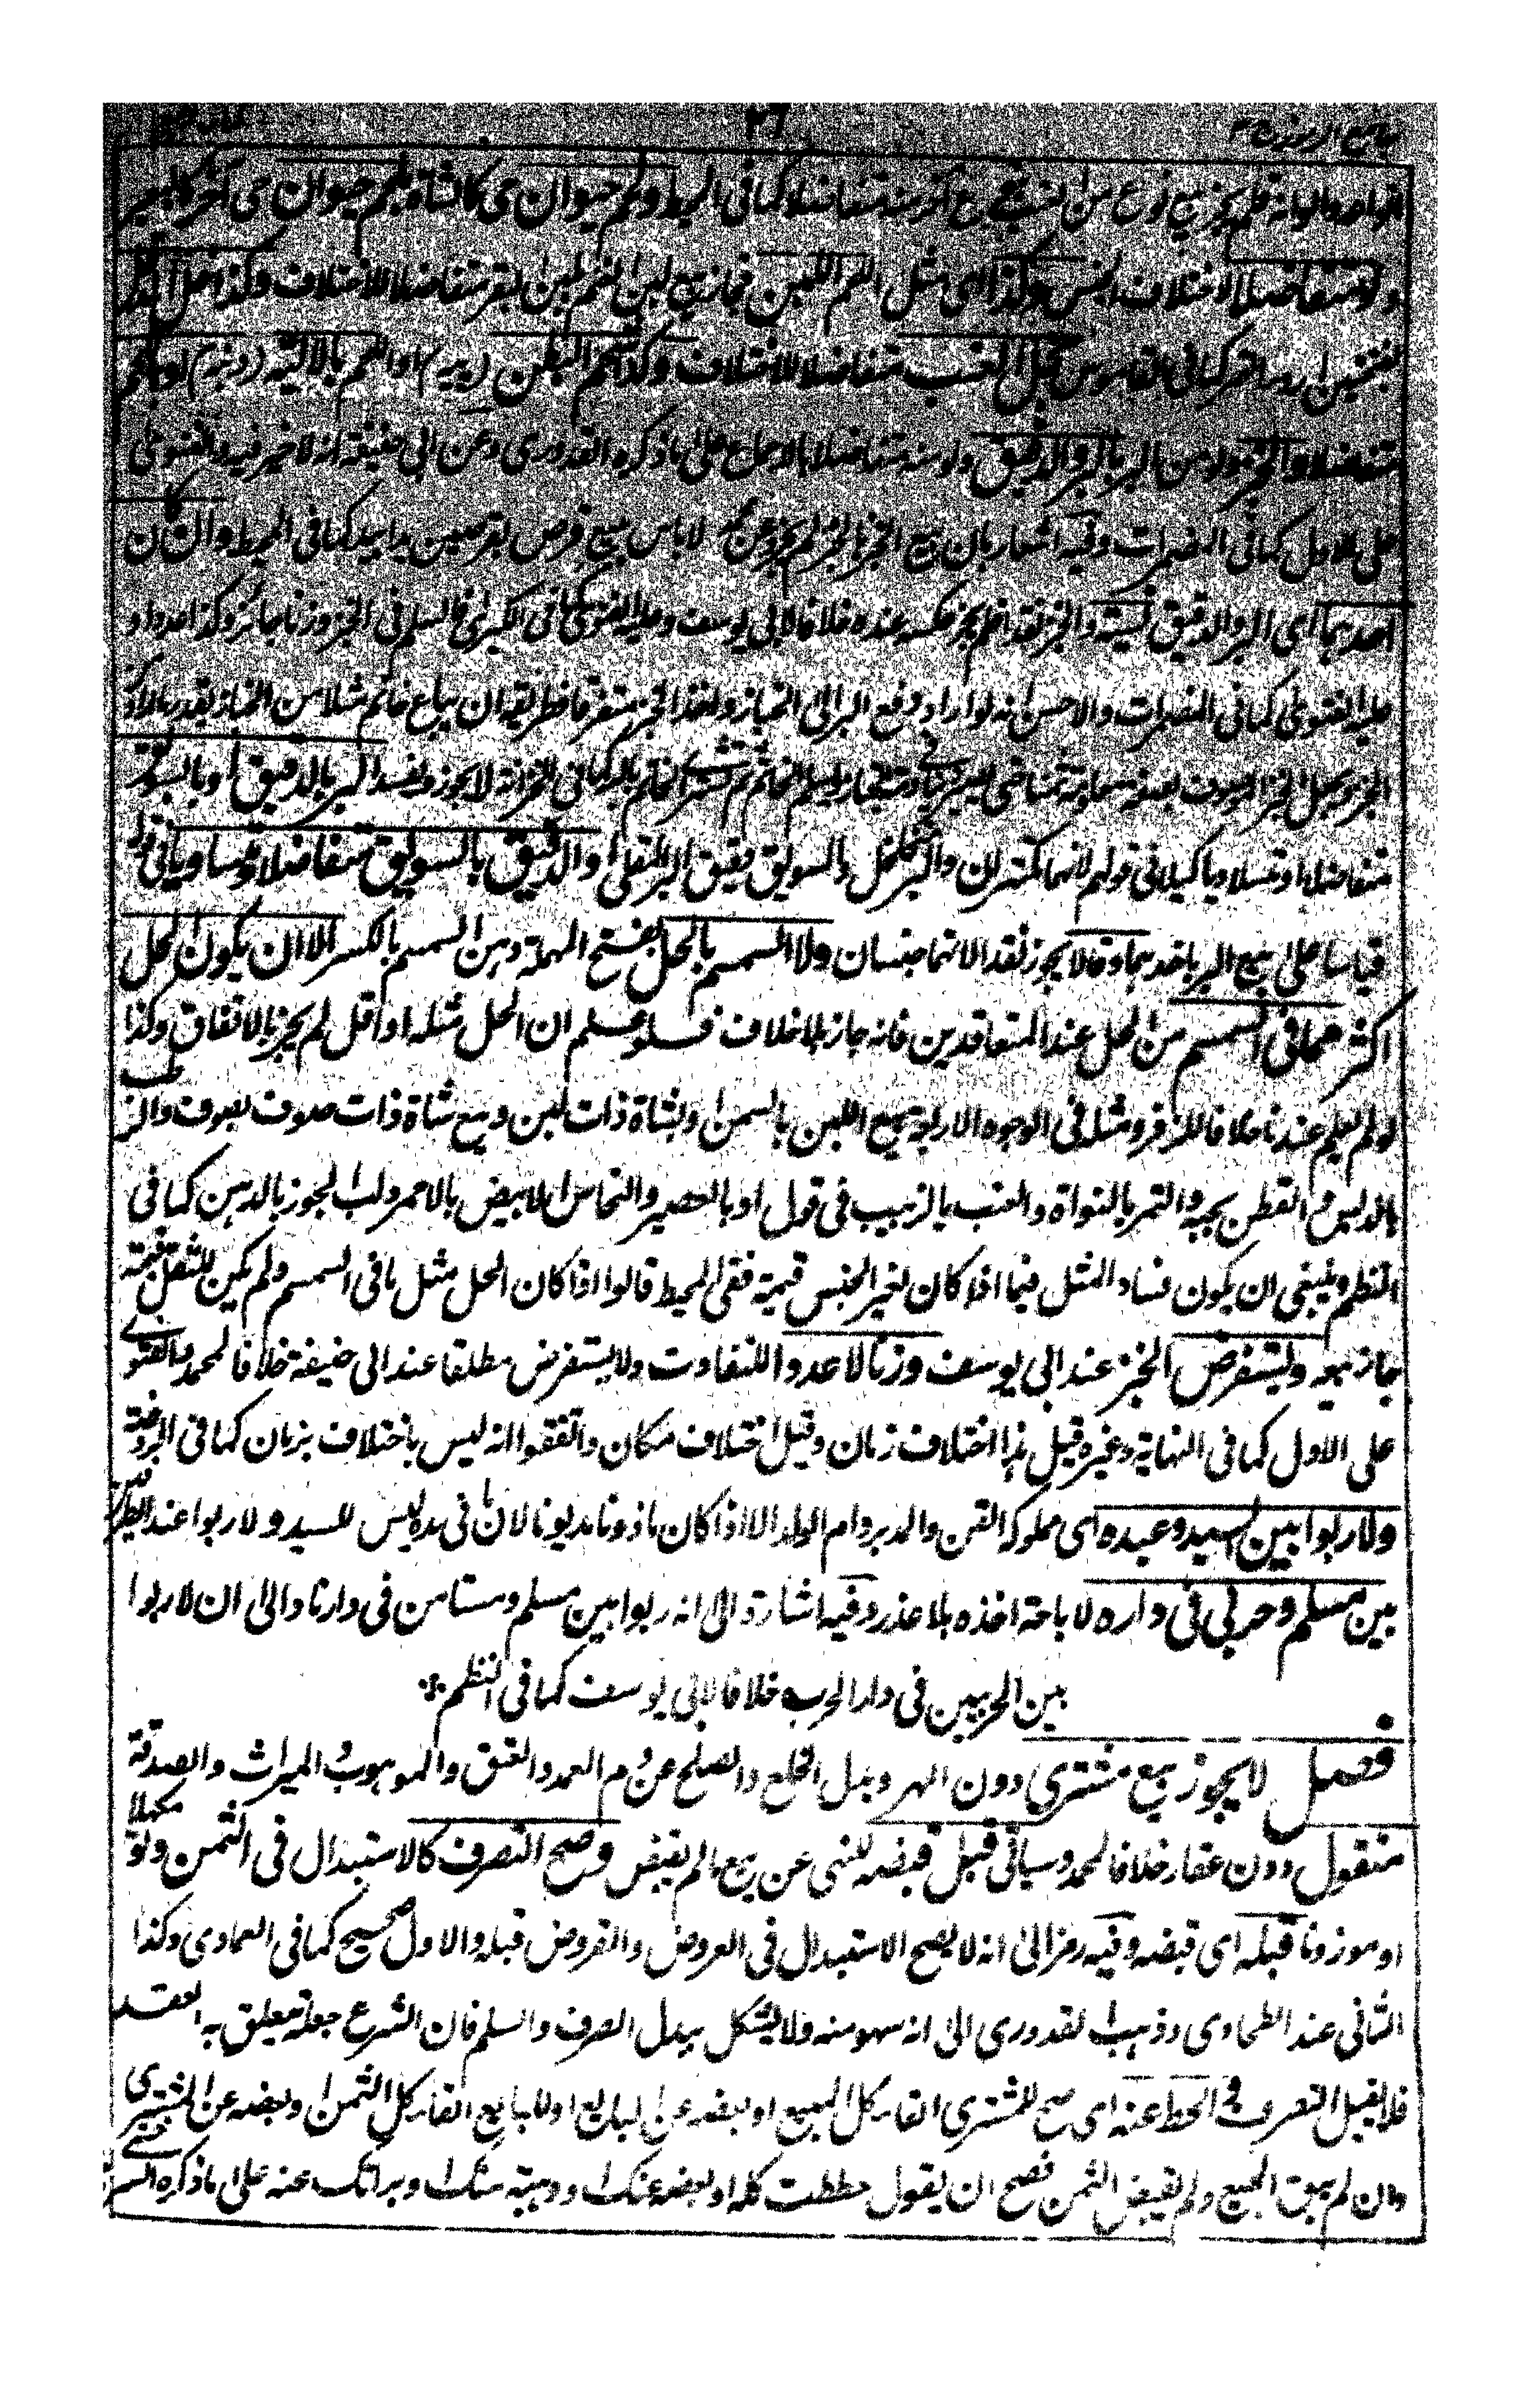 جامع الرموز ج ٣
٣٦
نوع من العنب بنوع آخر منه متفاضلا كما فى المحيط ولحم حيوان ى كالشاة بلحم حيوان ى آخر كالبعير
ولو متفاضلا لاختلاف الجنس وكذا اى مثل اللحم اللبن فجاز بيع لبن الغنم بلبن البقر متفاضلا للاختلاف وكذا خل الدقل
كما فى القاموس بخل العنب متفاضلا للاختلاف وكذا شحم البطن او اللحم بالالية
متفاضلا والخبز ولو من البر بالبر والدقيق ولو منه متفاضلا بالاجماع على ما ذكره القدورى وعن ابى حنيفة انه لا خير فيه والفتوى
على الاول كما فى المضمرات وفيه اشعار بان بيع الخبز بالخبز لم يجز وعن محمد لا باس ببيع قرص بقرصين يدا بيد كما فى المحيط وان كان
احدهما اى البر والدقيق نسيئة والخبز نقدا فلم يجز عكسه عنده خلافا لابى يوسف وعليه الفتوى كما فى الكبرى فالسلم فى الخبز وزنا جائز وكذا عددا و
عليه الفتوى كما فى المضمرات والاحسن انه لو اراد دفع البر الى الخباز واخذ الخبز متفرقا فطريقه ان يباع خاتم مثلا من الخباز بقدر ما اراد
الخبز ويجعل الخبز الموصوف بصفة معلومة ثمنا حتى يصير دينا ويسلم الخاتم ثم يشترى الخاتم بالبر كما فى الخزانة لا يجوز ويفسد البر بالدقيق او بالسويق
متفاضلا او متساويا كيلا فى قولهم لانهما مكتنزان والبر بالسويق دقيق البر المقلى والدقيق بالسويق متفاضلا ومتساويا فى قوله
قياسا على بيع البر باحدهما وقالا يجوز نقدا لانهما جنسان ولا السمسم بالحل بفتح المهملة دهن السمسم بالكسر الا ان يكون الحل
اكثر مما فى السمسم من الحل عند المتعاقدين فانه جاز بلا خلاف فلو علم ان الحل مثله او اقل لم يجز بالاتفاق وكذا
لو لم يعلم عندنا خلافا لزفر ومثله فى الوجوه الاربعة بيع اللبن بالسمن وبشاة ذات لبن وبيع شاة ذات صوف بصوف والرطب
بالدبس والقطن بحبه والتمر بالنواة والعنب بالزبيب فى قول او بالعصير والنحاس الابيض بالاحمر ولب الجوز بالدهن كما فى
النظم وينبغى ان يكون فساد المثل فيما اذا كان لغير الجنس قيمة ففى المحيط قالوا اذا كان الحل مثل ما فى السمسم ولم يكن للثفل قيمة
جاز بيعه ويستقرض الخبز عند ابى يوسف وزنا لا عددا للتفاوت ولا يستقرض مطلقا عند ابى حنيفة خلافا لمحمد والفتوى
على الاول كما فى النهاية وغيره قيل هذا اختلاف زمان وقيل اختلاف مكان واتفقوا انه ليس باختلاف برهان كما فى الروضة
ولا ربوا بين السيد وعبده اى مملوكه القن والمدبر وام الولد الا اذا كان ماذونا مديونا لان ما فى يده ليس للسيد ولا ربوا عند الطرفين
بين مسلم وحربى فى داره لاباحة اخذه بلا عذر وفيه اشارة الى انه ربوا بين مسلم ومستامن فى دارنا والى ان لا ربوا
بين الحربيين فى دار الحرب خلافا لابى يوسف كما فى النظم
فصل لا يجوز بيع مشترى دون المهر وبدل الخلع والصلح عن دم العمد والعتق والموهوب والميراث والصدقة
منقول دون عقار خلافا لمحمد وسياتى قبل قبضه للنهى عن بيع ما لم يقبض وصح التصرف كالاستبدال فى الثمن ولو مكيلا
او موزونا قبله اى قبضه وفيه رمز الى انه لا يصح الاستبدال فى العروض والقروض قبله والاول صحيح كما فى العمادى وكذا
الثانى عند الطحاوى وذهب القدورى الى انه سهو منه ولا يشكل ببدل الصرف والسلم فان الشرع جعله تعيلق به العقد
فلا يقبل التصرف والحط عنه اى صح للمشترى انقار كل المبيع او بعضه عن البايع او للبايع انقار كل الثمن او بعضه عن المشترى
وان لم يبق المبيع ولم يقبض الثمن فصح ان يقول حططت كله او بعضه عنك او وهبته منك او براتك عنه على ما ذكره السرخسى